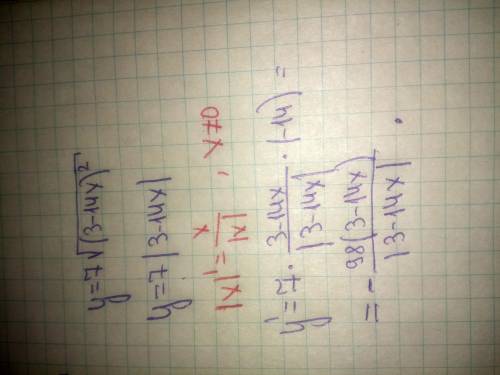 y = 7√(3-14x)²
y = 7|3-14x|
|x|' = x/|x| , x≠0
y' = 7 · (3-14x)/|3-14x| · (-14) =
= - 98(3-14x)/|3-14x| .